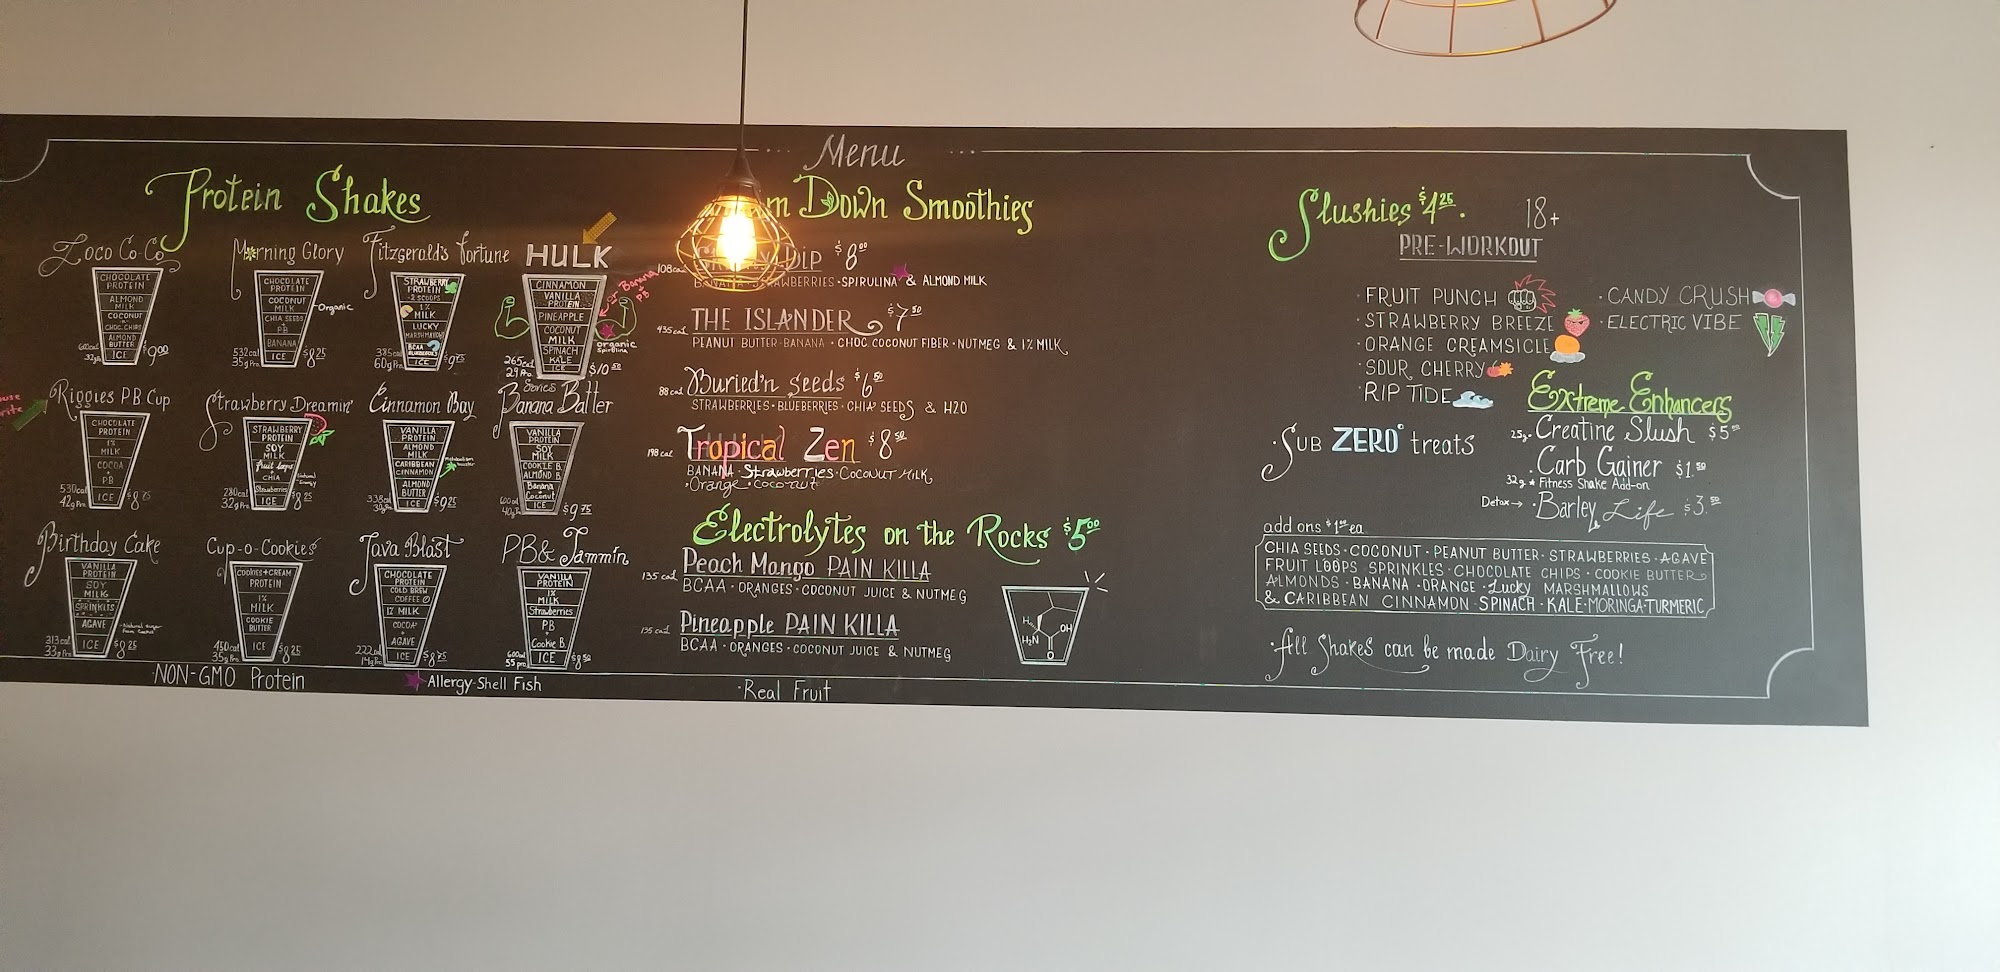 Menu
Protein Shakes
Loco Co-Co
CHOCOLATE
PROTEIN
ALMOND
MILK
COCONUT
CHOC. CHIPS
ALMOND
BUTTER
ICE
$9.00
Morning Glory
CHOCOLATE
PROTEIN
COCONUT
MILK
Organic
CHIA SEEDS
+
PB
BANANA
ICE
532cal
35gPro
$8.25
Fitzgerald's Fortune
STRAWBERRY
PROTEIN
-2 SCOOPS
1%
MILK
LUCKY
MARSHMALLOWS
BCAA
BLUEBERRIES
ICE
385cal
60gPro
$9.75
HULK
CINNAMON
VANILLA
PROTEIN
PINEAPPLE
COCONUT
MILK
SPINACH
KALE
ICE
or Banana
PB
organic
Spirulina
265cal
29Pro
$10.50
Riggies PB Cup
CHOCOLATE
PROTEIN
1%
MILK
COCOA
+
PB
ICE
530cal
42gPro
$8.75
Strawberry Dreamin'
STRAWBERRY
PROTEIN
SOY
MILK
fruit loops
+
CHIA
Strawberries
ICE
Natural
Energy
280cal
32gPro
$8.25
Cinnamon Bay
VANILLA
PROTEIN
ALMOND
MILK
CARIBBEAN
CINNAMON
ALMOND
BUTTER
ICE
Metabolism
booster
338cal
30gPro
$9.25
Series
Banana Batter
VANILLA
PROTEIN
SOY
MILK
COOKIE B.
ALMOND B.
Banana
Coconut
ICE
600cal
40gPro
$9.75
Birthday Cake
VANILLA
PROTEIN
SOY
MILK
SPRINKLES
AGAVE
ICE
Natural sugar
from Cactus
313cal
33gPro
$8.25
Cup-o-Cookies
COOKIES+CREAM
PROTEIN
1%
MILK
COOKIE
BUTTER
ICE
450cal
35gPro
$8.25
Java Blast
CHOCOLATE
PROTEIN
COLD BREW
COFFEE
1% MILK
COCOA
+
AGAVE
ICE
222cal
14gPro
$8.75
PB& Jammin
VANILLA
PROTEIN
1%
MILK
Strawberries
PB
+
Cookie B.
ICE
600cal
55 pro
$8.50
·NON-GMO Protein
Allergy-Shell Fish
·Real Fruit
Down Smoothies
108cal
Dip $8.00
BANANA · STRAWBERRIES · SPIRULINA & ALMOND MILK
435cal THE ISLANDER $7.50
PEANUT BUTTER · BANANA · CHOC. COCONUT FIBER · NUTMEG & 1% MILK
88 cal Buried'n Seeds $6.50
STRAWBERRIES · BLUEBERRIES · CHIA SEEDS & H2O
198 cal Tropical Zen $8.50
BANANA · Strawberries · COCONUT MILK,
·Orange · coconut
Electrolytes on the Rocks $5.00
135 cal Peach Mango PAIN KILLA
BCAA · ORANGES · COCONUT JUICE & NUTMEG
135 cal Pineapple PAIN KILLA
BCAA · ORANGES · COCONUT JUICE & NUTMEG
H
H2N
OH
O
Slushies $4.25.
18+
PRE-WORKOUT
· FRUIT PUNCH
· STRAWBERRY BREEZE
· ORANGE CREAMSICLE
· SOUR CHERRY
· RIP TIDE
· CANDY CRUSH
· ELECTRIC VIBE
· SUB ZERO° treats
Extreme Enhancers
25g · Creatine Slush $5
· Carb Gainer $1.50
32g * Fitness Shake Add-on
Detox → · Barley Life $3.50
add ons $1.00 ea
CHIA SEEDS · COCONUT · PEANUT BUTTER · STRAWBERRIES · AGAVE
FRUIT LOOPS SPRINKLES · CHOCOLATE CHIPS · COOKIE BUTTER
ALMONDS · BANANA · ORANGE · Lucky MARSHMALLOWS
& CARIBBEAN CINNAMON · SPINACH · KALE · MORINGA · TURMERIC
· All Shakes can be made Dairy Free!